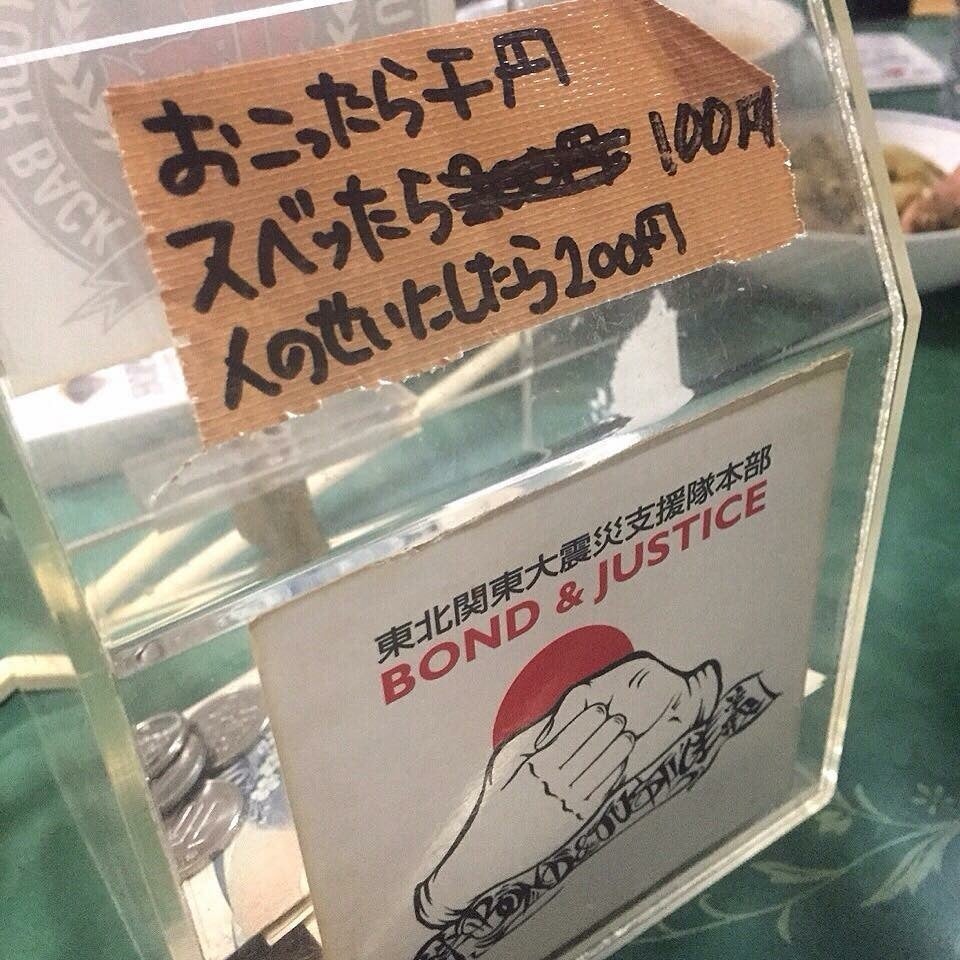 おこったら千円
スベッたら200円 100円
人のせいにしたら200円
東北関東大震災支援隊本部
BOND & JUSTICE
BACK